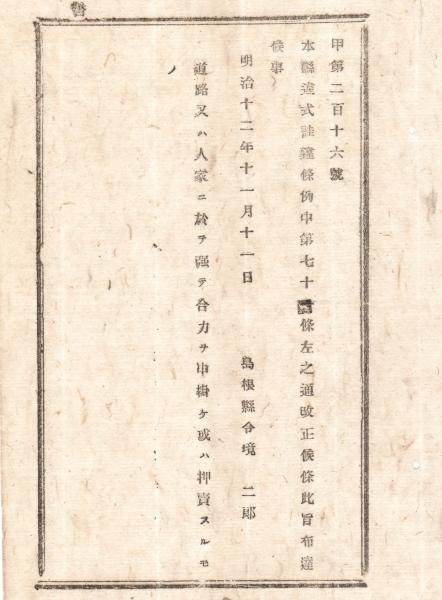 甲第二百十六號
本縣違式詿違條例中第七十條左之通改正候條此旨布達
候事
明治十二年十一月十一日 島根縣令境 二郎
道路又ハ人家ニ於テ强テ合力ヲ申掛ケ或ハ押賣スルモ
ノ